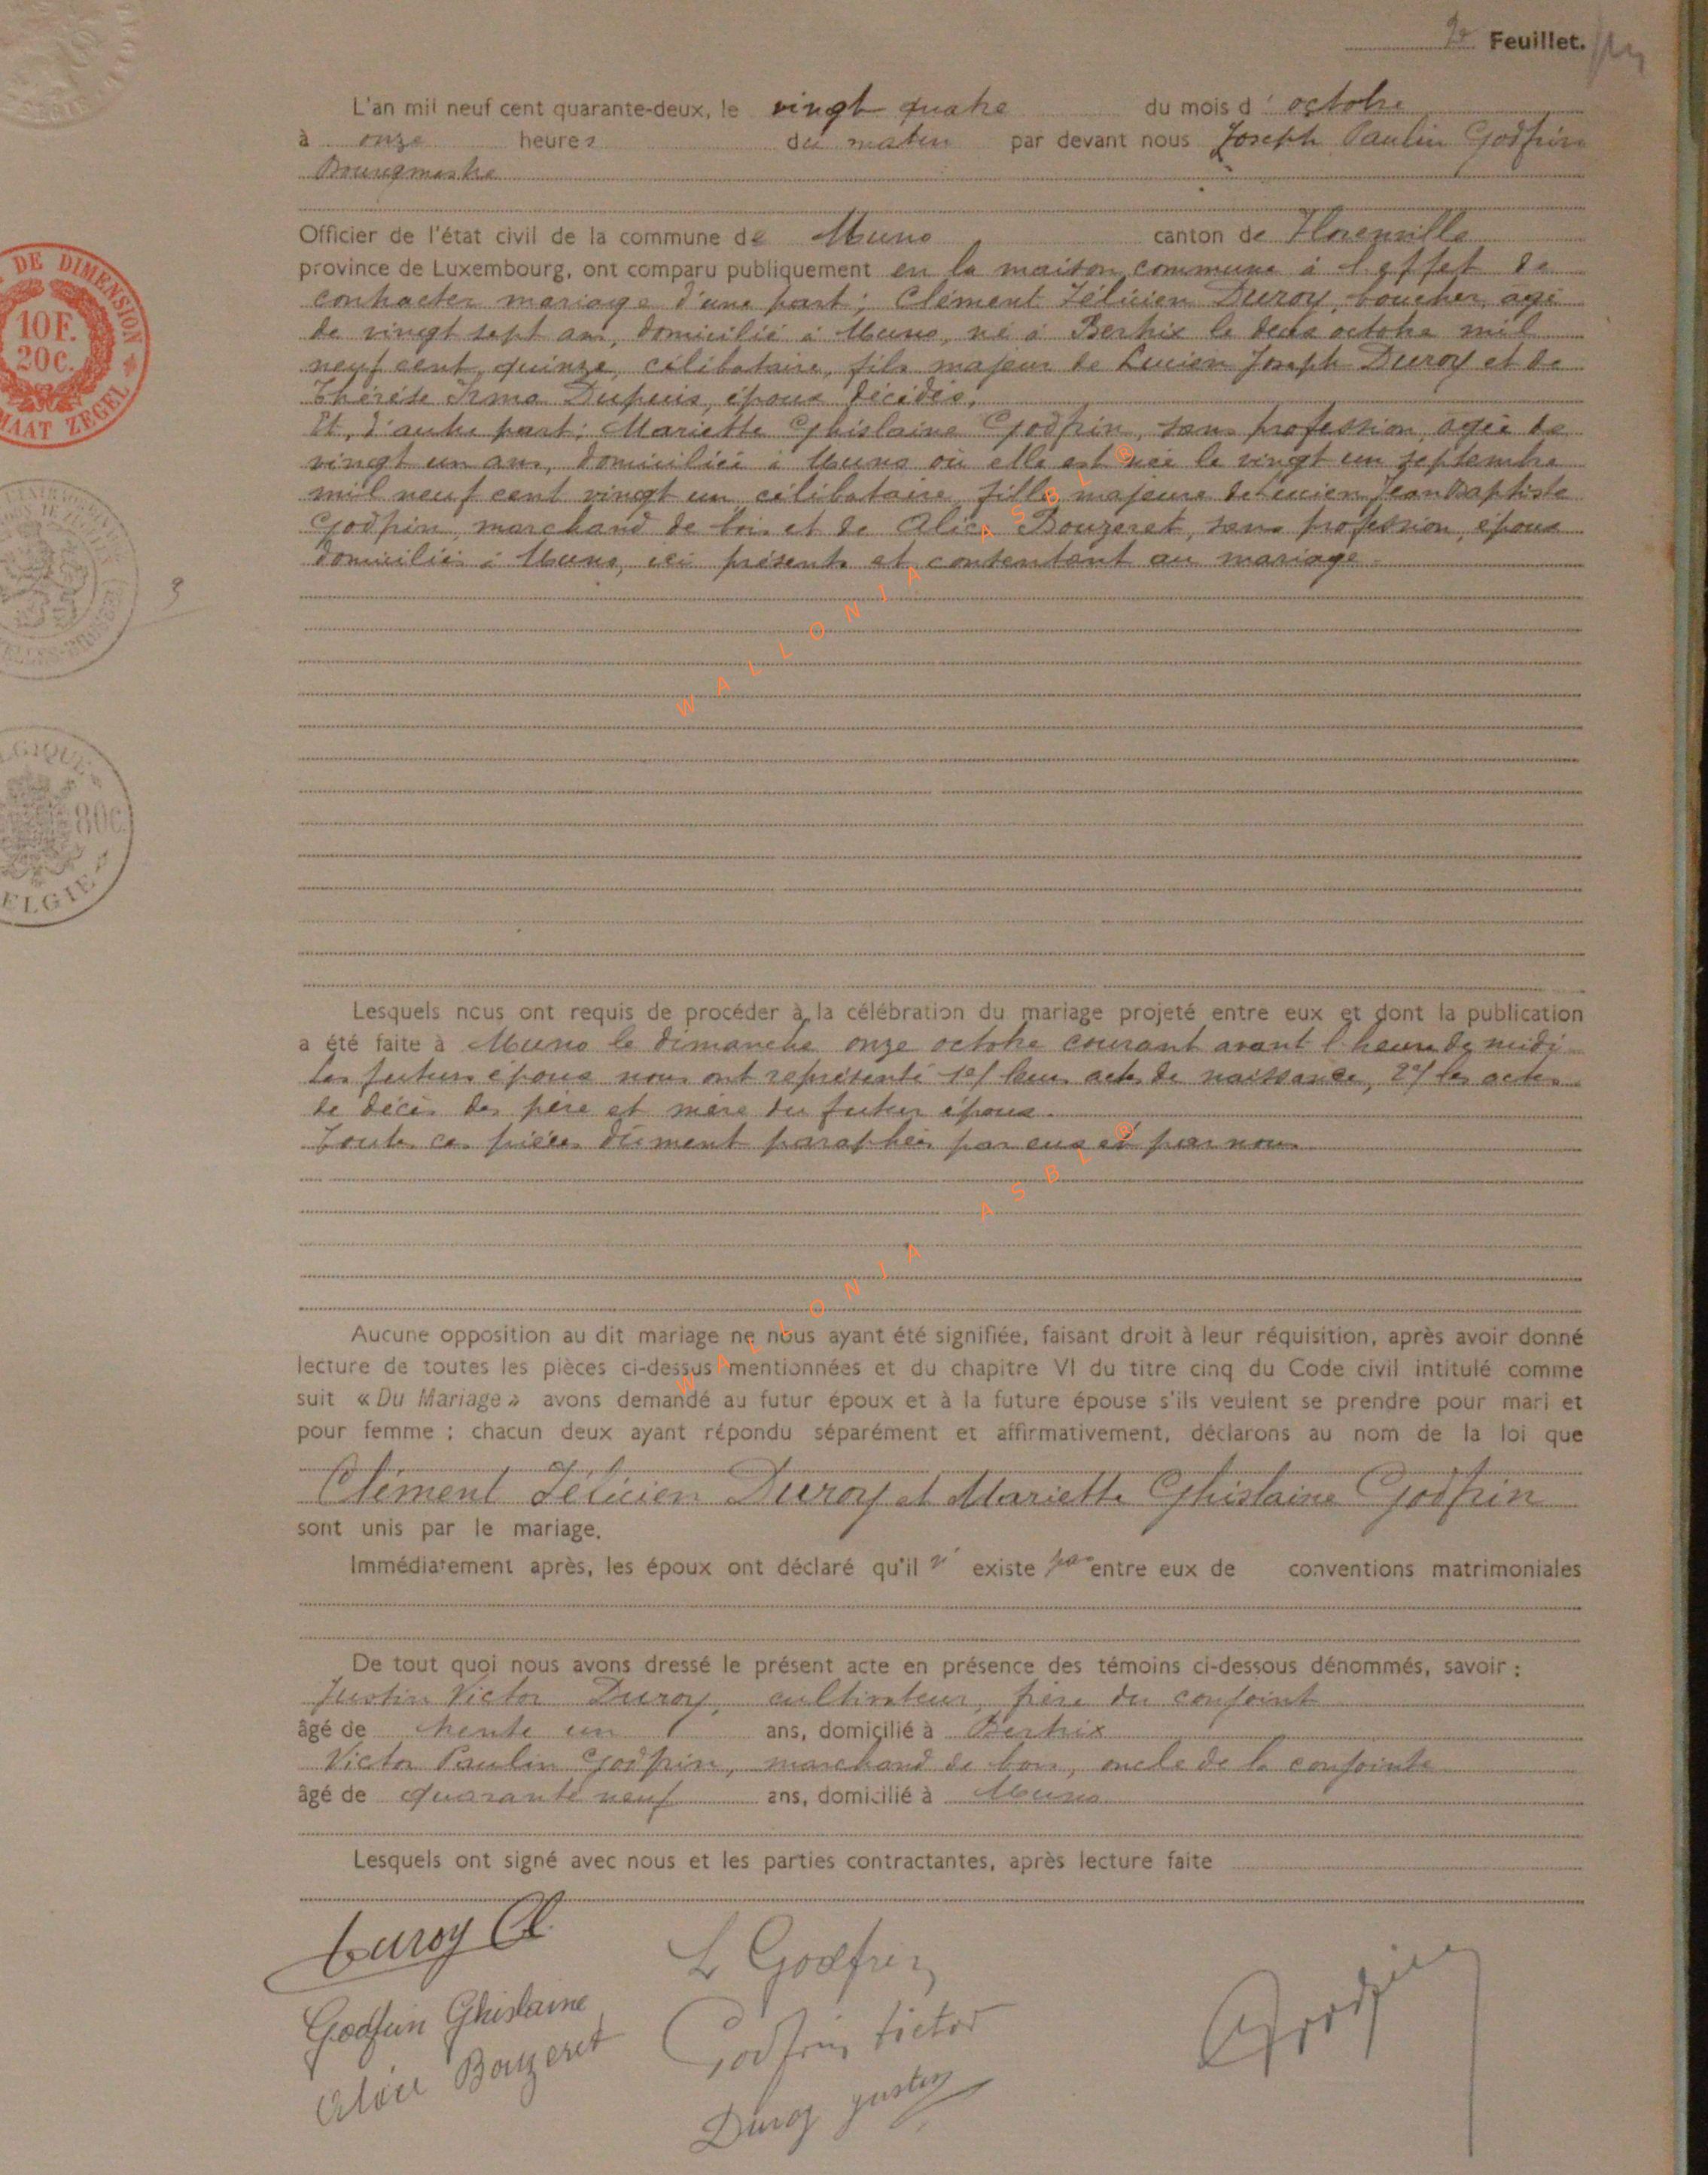 9e Feuillet.
L'an mil neuf cent quarante-deux, le vingt quatre du mois d' octobre
à onze heures du matin par devant nous Joseph Paulin Godfrin
Bourgmestre
Officier de l'état civil de la commune de Muno canton de Florenville
province de Luxembourg, ont comparu publiquement en la maison commune à l'effet de
contracter mariage d'une part: Clément Félicien Duroy, boucher, âgé
de vingt sept ans, domicilié à Muno, né à Bertrix le deux octobre mil
neuf cent quinze, célibataire, fils majeur de Lucien Joseph Duroy et de
Thérèse Irma Dupuis, époux décédés.
Et, d'autre part: Mariette Ghislaine Godfrin, sans profession, âgée de
vingt un ans, domiciliée à Muno où elle est née le vingt un septembre
mil neuf cent vingt un, célibataire, fille majeure de Lucien Jean Baptiste
Godfrin, marchand de bois et de Alice Bouzeret, sans profession, époux
domiciliés à Muno, ici présents et consentant au mariage.
Lesquels nous ont requis de procéder à la célébration du mariage projeté entre eux et dont la publication
a été faite à Muno le dimanche onze octobre courant avant l'heure de midi
Les futurs époux nous ont représenté 1°/ leurs actes de naissance, 2°/ les actes
de décès des père et mère du futur époux.
Toutes ces pièces dûment paraphées par eux et par nous
Aucune opposition au dit mariage ne nous ayant été signifiée, faisant droit à leur réquisition, après avoir donné
lecture de toutes les pièces ci-dessus mentionnées et du chapitre VI du titre cinq du Code civil intitulé comme
suit « Du Mariage » avons demandé au futur époux et à la future épouse s'ils veulent se prendre pour mari et
pour femme ; chacun deux ayant répondu séparément et affirmativement, déclarons au nom de la loi que
Clément Félicien Duroy et Mariette Ghislaine Godfrin
sont unis par le mariage.
Immédiatement après, les époux ont déclaré qu'il n' existe pas entre eux de conventions matrimoniales
De tout quoi nous avons dressé le présent acte en présence des témoins ci-dessous dénommés, savoir :
Justin Victor Duroy, cultivateur, frère du conjoint
âgé de trente un ans, domicilié à Bertrix
Victor Paulin Godfrin, marchand de bois, oncle de la conjointe
âgé de quarante neuf ans, domicilié à Muno
Lesquels ont signé avec nous et les parties contractantes, après lecture faite
Duroy Cl.
L Godfrin
Godfrin Ghislaine
Godfrin Victor
Alice Bouzeret
Duroy Justin
Godfrin
DE DIMENSION
10F.
20C.
MAAT ZEGEL
3
LGIQUE
80C.
ELGIE
WALLONIA ASBL ®
WALLONIA ASBL ®